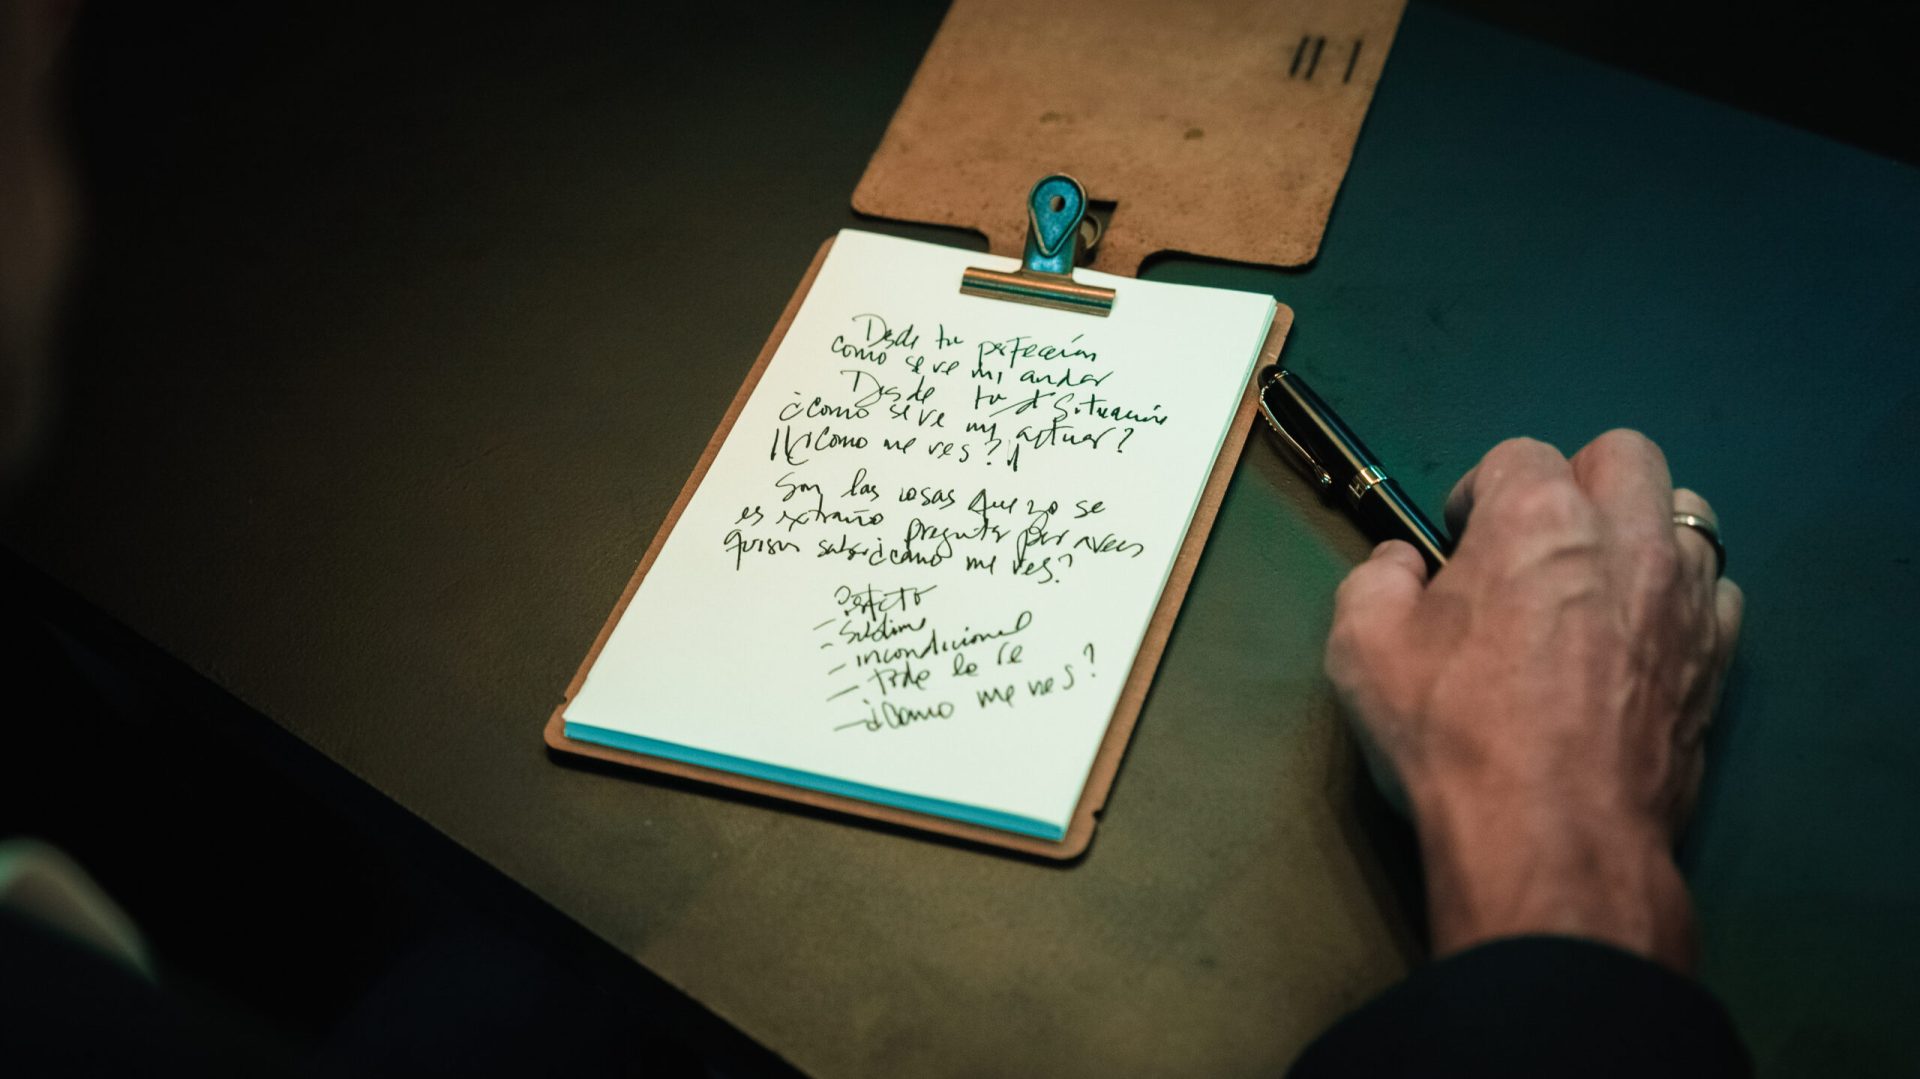 Desde tu perfección
como se ve mi andar
Desde tu Situación
¿Como se ve mi actuar?
¿Como me ves?
Son las cosas que yo se
es extraño preguntar por aveces
quisiera saber ¿como me ves?
- Sublime
- incondicional
- todo lo ve
- ¿Como me ves?